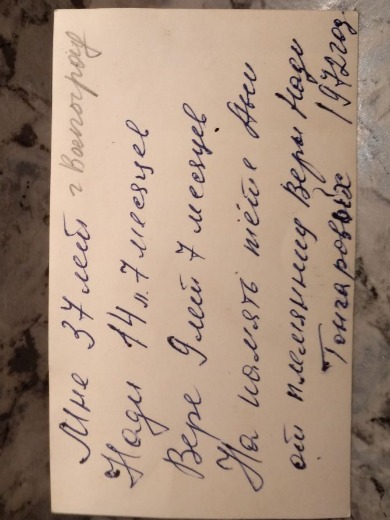 Мне 37 лет г Волгоград
Нади 14 л. 7 месяцев
Вере 9 лет 7 месяцев
На память тёте Ани
от племянниц Веры Нади
Гончаровых 1972 год